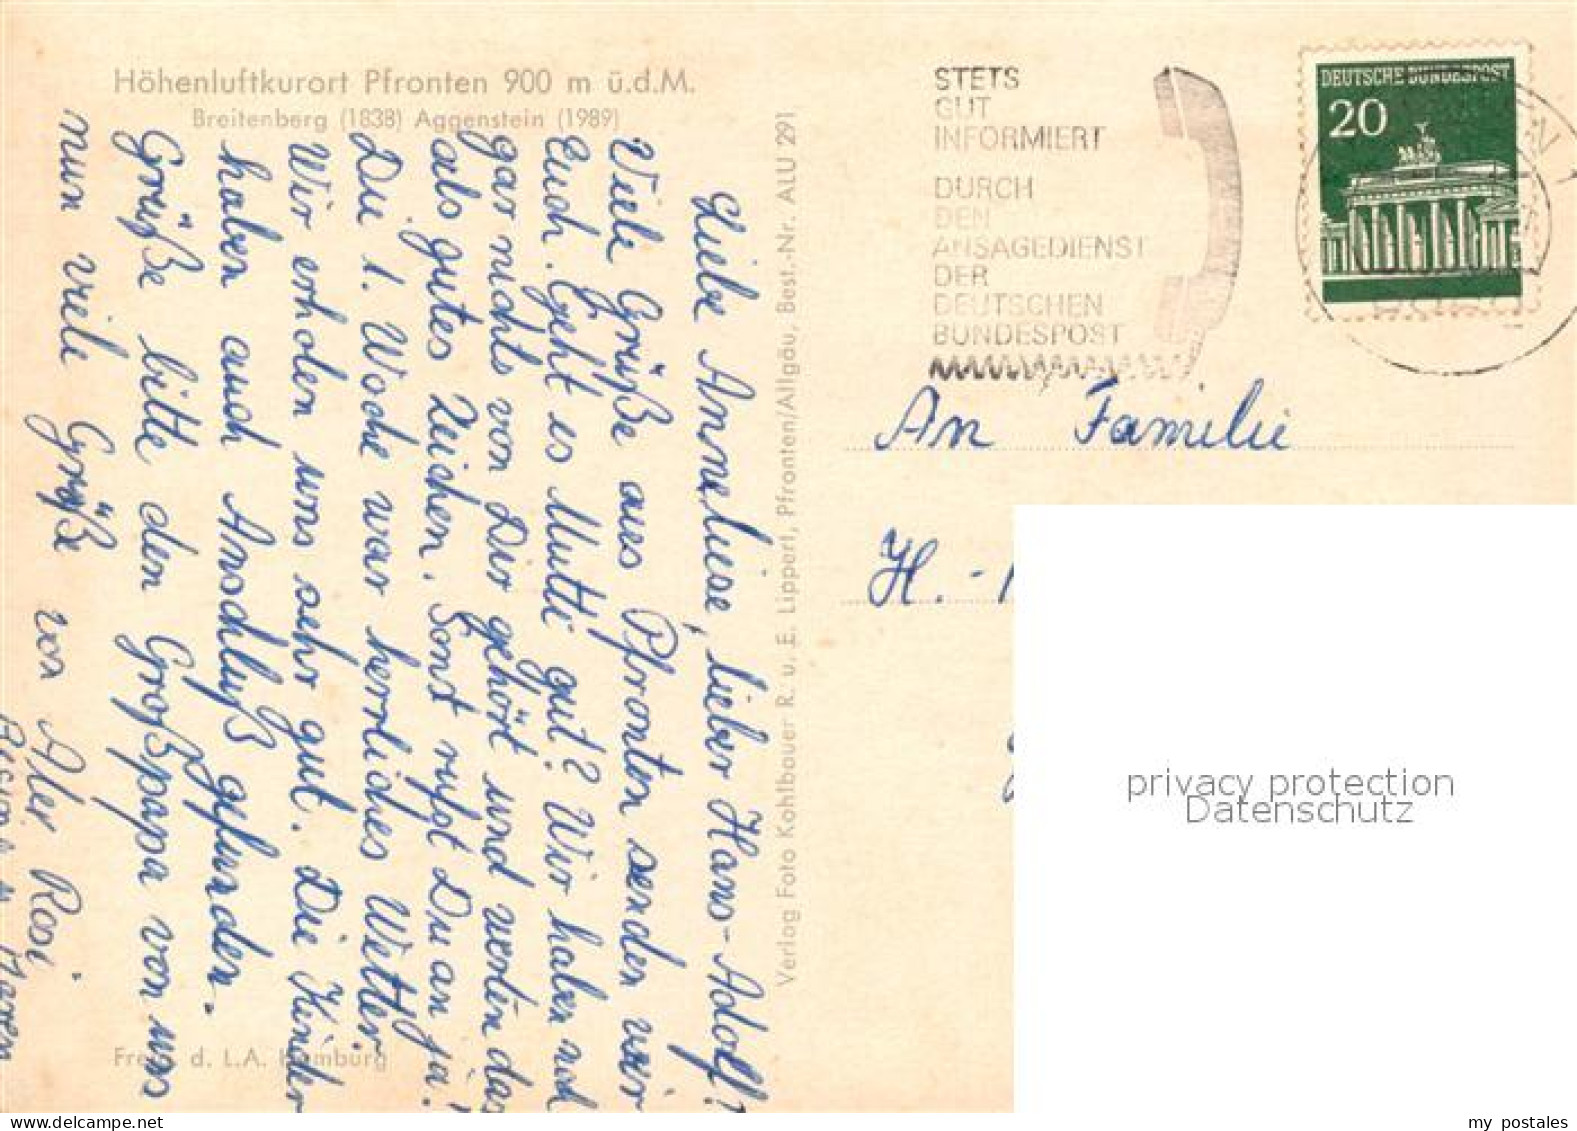 Höhenluftkurort Pfronten 900 m ü.d.M.
Breitenberg (1838) Aggenstein (1989)
Liebe Anneliese, lieber Hans-Adolf!
Viele Grüße aus Pfronten senden wir
Euch. Geht es Mutti gut? Wir haben noch
gar nichts von Dir gehört und werten das
als gutes Zeichen. Sonst rufst Du an ja!
Die 1. Woche war herrliches Wetter.
Wir erholen uns sehr gut. Die Kinder
haben auch Anschluß gefunden.
Grüße bitte den Großpapa von uns
nun viele Grüße von
Rosi
Maren
Verlag Foto Kohlbauer R. u. E. Lippert, Pfronten/Allgäu, Best.-Nr. ALU 291
d. L.A. Hamburg
STETS
GUT
INFORMIERT
DURCH
DEN
ANSAGEDIENST
DER
DEUTSCHEN
BUNDESPOST
DEUTSCHE BUNDESPOST
20
An Familie
H. -
privacy protection
Datenschutz
my postales